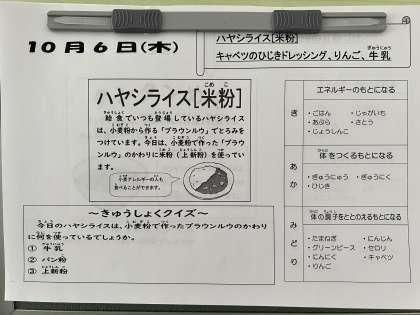 10月6日(木)
ハヤシライス[米粉]
キャベツのひじきドレッシング、りんご、牛乳
ハヤシライス[米粉]
給食でいつも登場しているハヤシライス
は、小麦粉から作る「ブラウンルウ」でとろみを
つけています。今日は、小麦粉で作った「ブラウ
ンルウ」のかわりに米粉(上新粉)を使ってい
ます。
小麦アレルギーの人も
食べることができます。
～きゅうしょくクイズ～
今日のハヤシライスは、小麦粉で作ったブラウンルウのかわり
に何を使っているでしょうか。
① 牛乳
② パン粉
③ 上新粉
き
エネルギーのもとになる
・ごはん ・じゃがいも
・あぶら ・さとう
・じょうしんこ
あか
体をつくるもとになる
・ぎゅうにゅう ・ぎゅうにく
・ひじき
みどり
体の調子をととのえるもとになる
・たまねぎ ・にんじん
・グリーンピース ・セロリ
・にんにく ・キャベツ
・りんご